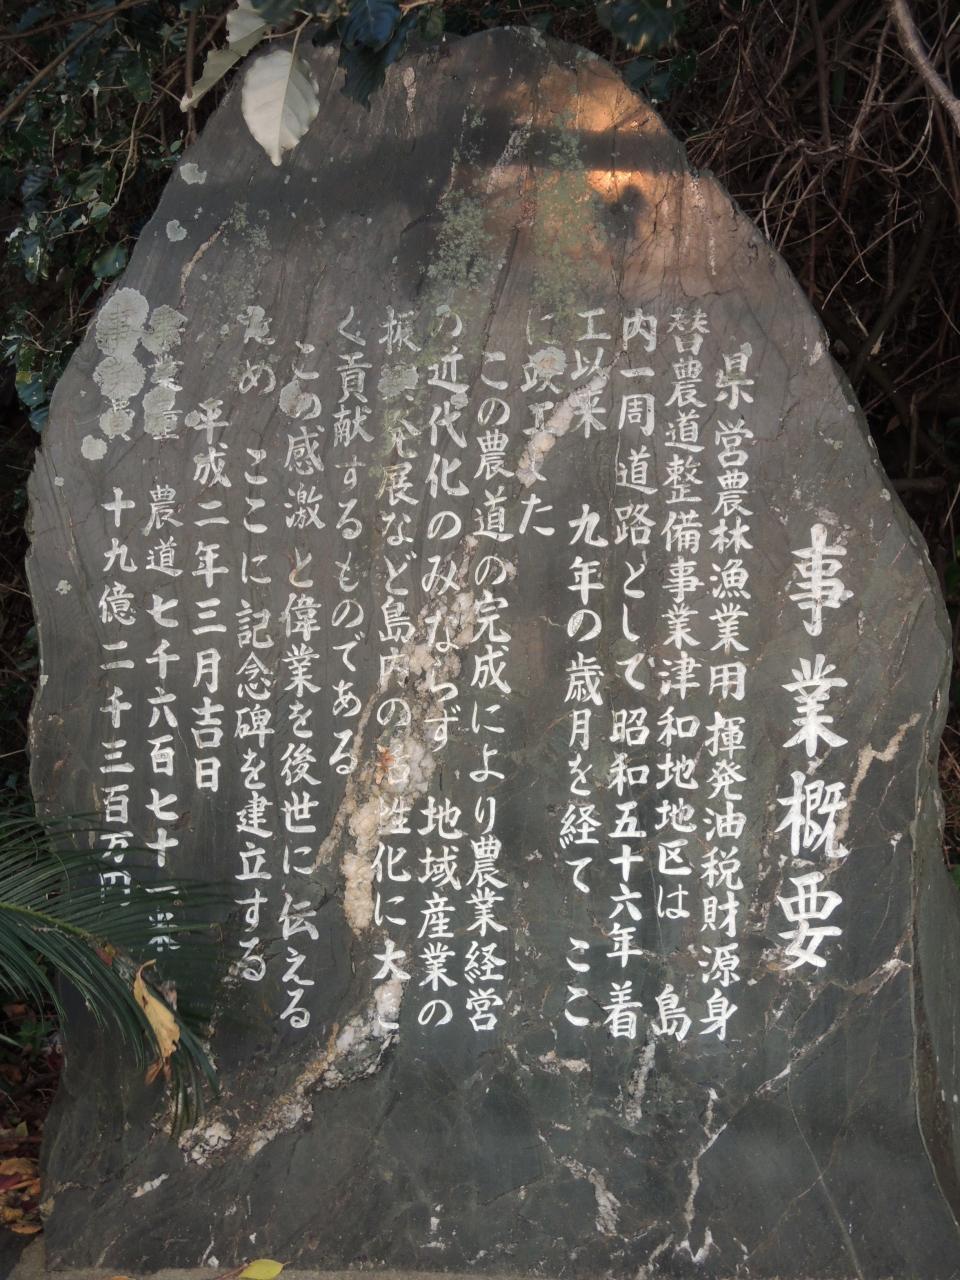 事業概要
県営農林漁業用揮発油税財源身
替農道整備事業津和地地区は 島
内一周道路として昭和五十六年着
工以来 九年の歳月を経て ここ
に竣工した
この農道の完成により農業経営
の近代化のみならず 地域産業の
振興発展など島内の活性化に大き
く貢献するものである
この感激と偉業を後世に伝える
ため ここに記念碑を建立する
平成二年三月吉日
事業量 農道七千六百七十一米
事業費 十九億二千三百万円